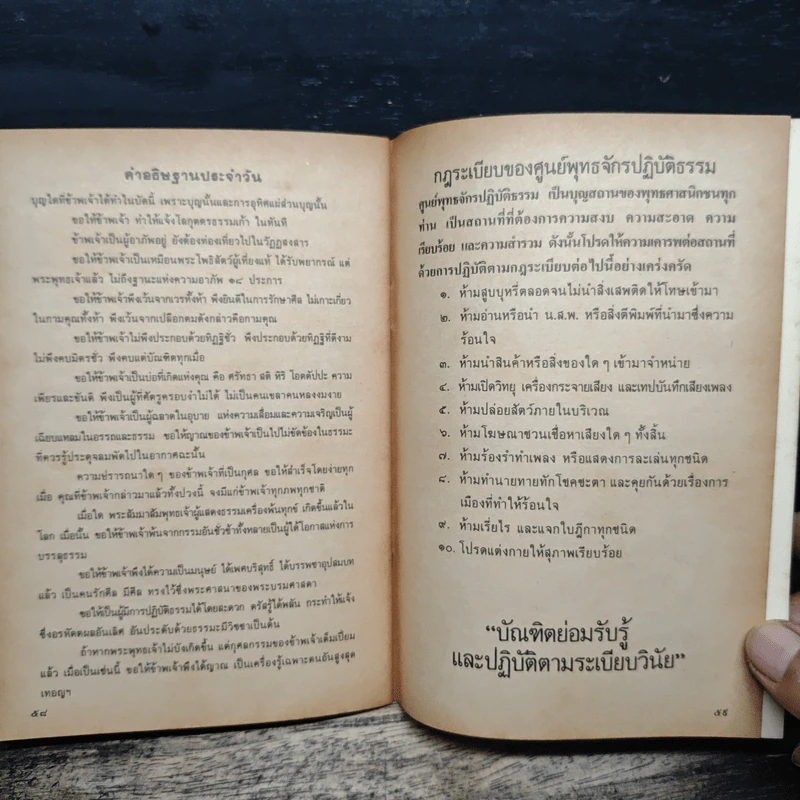 คำอธิษฐานประจำวัน
บุญใดที่ข้าพเจ้าได้ทำในบัดนี้ เพราะบุญนั้นและการอุทิศแผ่ส่วนบุญนั้น
ขอให้ข้าพเจ้า ทำให้แจ้งโลกุตตรธรรมเก้า ในทันที
ข้าพเจ้าเป็นผู้อาภัพอยู่ ยังต้องท่องเที่ยวไปในวัฏฏสงสาร
ขอให้ข้าพเจ้าเป็นเหมือนพระโพธิสัตว์ผู้เที่ยงแท้ ได้รับพยากรณ์ แต่
พระพุทธเจ้าแล้ว ไม่ถึงฐานะแห่งความอาภัพ ๑๘ ประการ
ขอให้ข้าพเจ้าพึงเว้นจากเวรทั้งห้า พึงยินดีในการรักษาศีล ไม่เกาะเกี่ยว
ในกามคุณทั้งห้า พึงเว้นจากเปลือกตมดังกล่าวคือกามคุณ
ขอให้ข้าพเจ้าไม่พึงประกอบด้วยทิฏฐิชั่ว พึงประกอบด้วยทิฏฐิที่ดีงาม
ไม่พึงคบมิตรชั่ว พึงคบแต่บัณฑิตทุกเมื่อ
ขอให้ข้าพเจ้าเป็นบ่อที่เกิดแห่งคุณ คือ ศรัทธา สติ หิริ โอตตัปปะ ความ
เพียรและขันติ พึงเป็นผู้ที่ศัตรูครอบงำไม่ได้ ไม่เป็นคนเขลาคนหลงงมงาย
ขอให้ข้าพเจ้าเป็นผู้ฉลาดในอุบาย แห่งความเสื่อมและความเจริญเป็นผู้
เฉียบแหลมในอรรถและธรรม ขอให้ญาณของข้าพเจ้าเป็นไปไม่ขัดข้องในธรรมะ
ที่ควรรู้ประดุจลมพัดไปในอากาศฉะนั้น
ความปรารถนาใด ๆ ของข้าพเจ้าที่เป็นกุศล ขอให้สำเร็จโดยง่ายทุก
เมื่อ คุณที่ข้าพเจ้ากล่าวมาแล้วทั้งปวงนี้ จงมีแก่ข้าพเจ้าทุกภพทุกชาติ
เมื่อใด พระสัมมาสัมพุทธเจ้าผู้แสดงธรรมเครื่องพ้นทุกข์ เกิดขึ้นแล้วใน
โลก เมื่อนั้น ขอให้ข้าพเจ้าพ้นจากกรรมอันชั่วช้าทั้งหลายเป็นผู้ได้โอกาสแห่งการ
บรรลุธรรม
ขอให้ข้าพเจ้าพึงได้ความเป็นมนุษย์ ได้เพศบริสุทธิ์ ได้บรรพชาอุปสมบท
แล้ว เป็นคนรักศีล มีศีล ทรงไว้ซึ่งพระศาสนาของพระบรมศาสดา
ขอให้เป็นผู้มีการปฏิบัติธรรมได้โดยสะดวก ตรัสรู้ได้พลัน กระทำให้แจ้ง
ซึ่งอรหัตตผลอันเลิศ อันประดับด้วยธรรมะมีวิชชาเป็นต้น
ถ้าหากพระพุทธเจ้าไม่บังเกิดขึ้น แต่กุศลกรรมของข้าพเจ้าเต็มเปี่ยม
แล้ว เมื่อเป็นเช่นนี้ ขอให้ข้าพเจ้าพึงได้ญาณ เป็นเครื่องรู้เฉพาะตนอันสูงสุด
เทอญฯ
๕๘
กฎระเบียบของศูนย์พุทธจักรปฏิบัติธรรม
ศูนย์พุทธจักรปฏิบัติธรรม เป็นบุญสถานของพุทธศาสนิกชนทุก
ท่าน เป็นสถานที่ที่ต้องการความสงบ ความสะอาด ความ
เรียบร้อย และความสำรวม ดังนั้นโปรดให้ความเคารพต่อสถานที่
ด้วยการปฏิบัติตามกฎระเบียบต่อไปนี้อย่างเคร่งครัด
๑. ห้ามสูบบุหรี่ตลอดจนไม่นำสิ่งเสพติดให้โทษเข้ามา
๒. ห้ามอ่านหรือนำ น.ส.พ. หรือสิ่งตีพิมพ์ที่นำมาซึ่งความ
ร้อนใจ
๓. ห้ามนำสินค้าหรือสิ่งของใด ๆ เข้ามาจำหน่าย
๔. ห้ามเปิดวิทยุ เครื่องกระจายเสียง และเทปบันทึกเสียงเพลง
๕. ห้ามปล่อยสัตว์ภายในบริเวณ
๖. ห้ามโฆษณาชวนเชื่อหาเสียงใด ๆ ทั้งสิ้น
๗. ห้ามร้องรำทำเพลง หรือแสดงการละเล่นทุกชนิด
๘. ห้ามทำนายทายทักโชคชะตา และคุยกันด้วยเรื่องการ
เมืองที่ทำให้ร้อนใจ
๙. ห้ามเรี่ยไร และแจกใบฎีกาทุกชนิด
๑๐. โปรดแต่งกายให้สุภาพเรียบร้อย
“บัณฑิตย่อมรับรู้
และปฏิบัติตามระเบียบวินัย”
๕๙